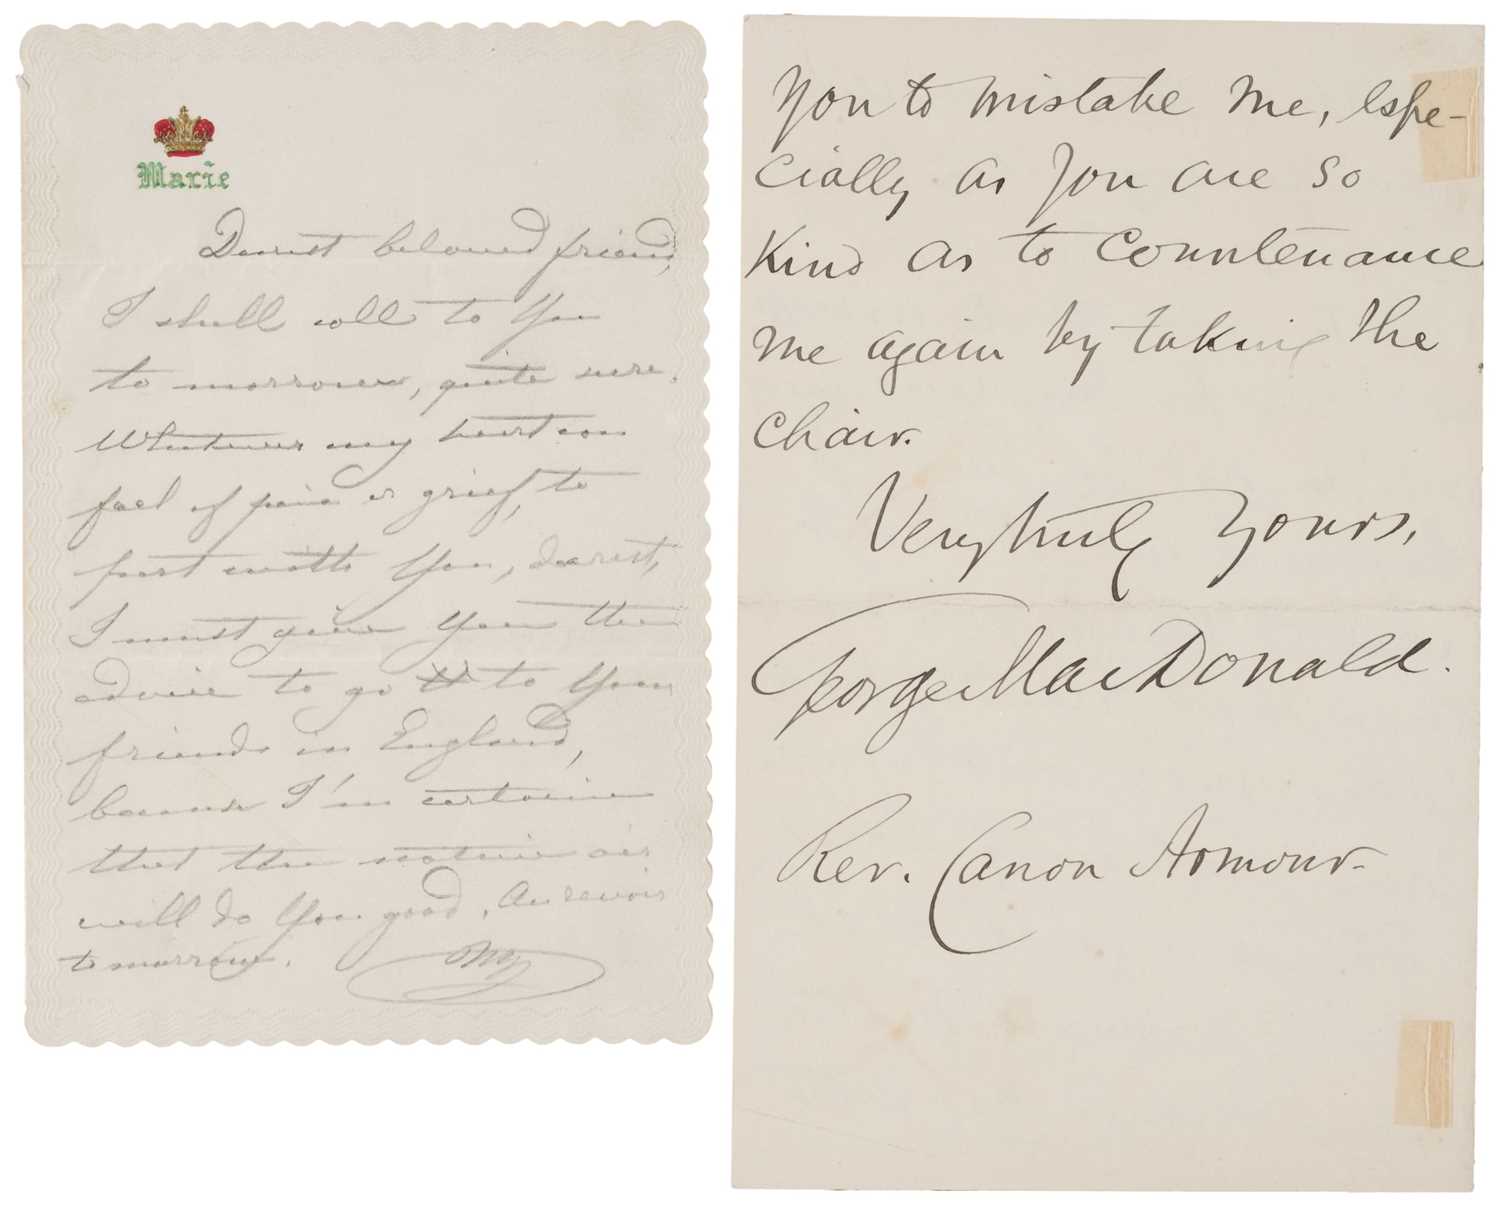 Marie
Dearest beloved friend,
I shall call to You
to morrow, quite sure.
Whatever my heart can
feel of pain or grief, to
part with You, dearest,
I must give You the
advice to go to Your
friends in England,
because I'm certain
that the native air
will do You good. Au revoir
to morrow.
You to mistake me, espe-
cially as you are so
kind as to countenance
me again by taking the
chair.
Very truly Yours,
George MacDonald.
Rev. Canon Armour.